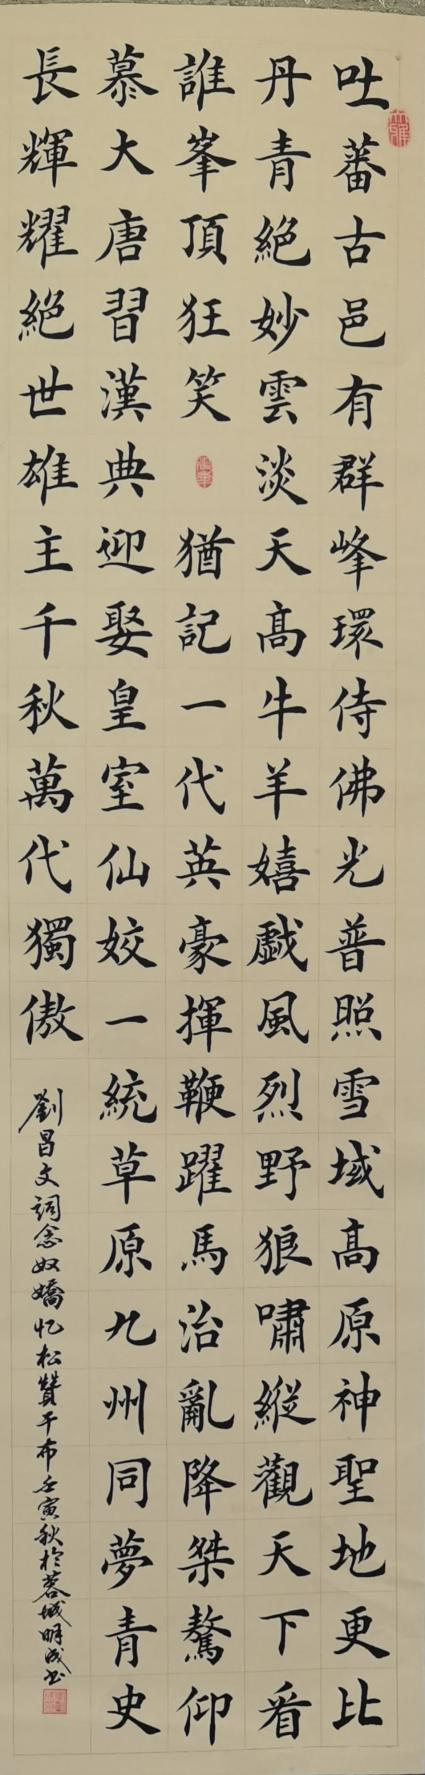 吐蕃古邑有群峰環侍佛光普照雪域高原神聖地更比
丹青絕妙雲淡天高牛羊嬉戲風烈野狼嘯縱觀天下看
誰峯頂狂笑 猶記一代英豪揮鞭躍馬治亂降桀驁仰
慕大唐習漢典迎娶皇室仙姣一統草原九州同夢青史
長輝耀絕世雄主千秋萬代獨傲
劉昌文詞念奴嬌忆松贊干布壬寅秋於蓉城明成书